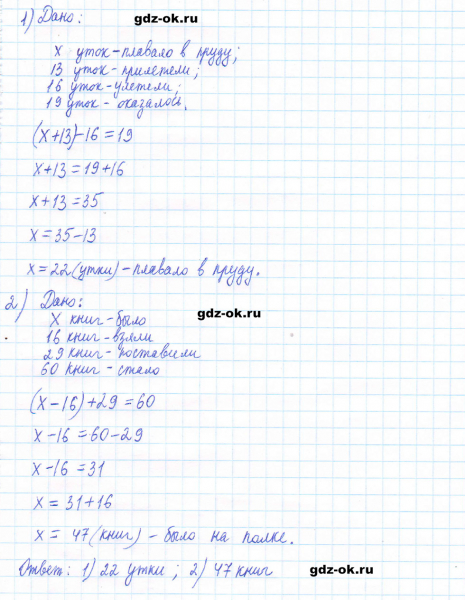 1) Дано:
gdz-ok.ru
x уток-плавало в пруду;
13 уток-прилетели;
16 уток-улетели;
19 уток-оказалось.
(x+13)-16=19
x+13=19+16
x+13=35
x=35-13
x=22(утки)-плавало в пруду.
2) Дано:
gdz-ok.ru
x книг-было
16 книг-взяли
29 книг-поставили
60 книг-стало
(x-16)+29=60
x-16=60-29
x-16=31
x=31+16
x=47(книг)-было на полке.
Ответ: 1) 22 утки; 2) 47 книг
gdz-ok.ru